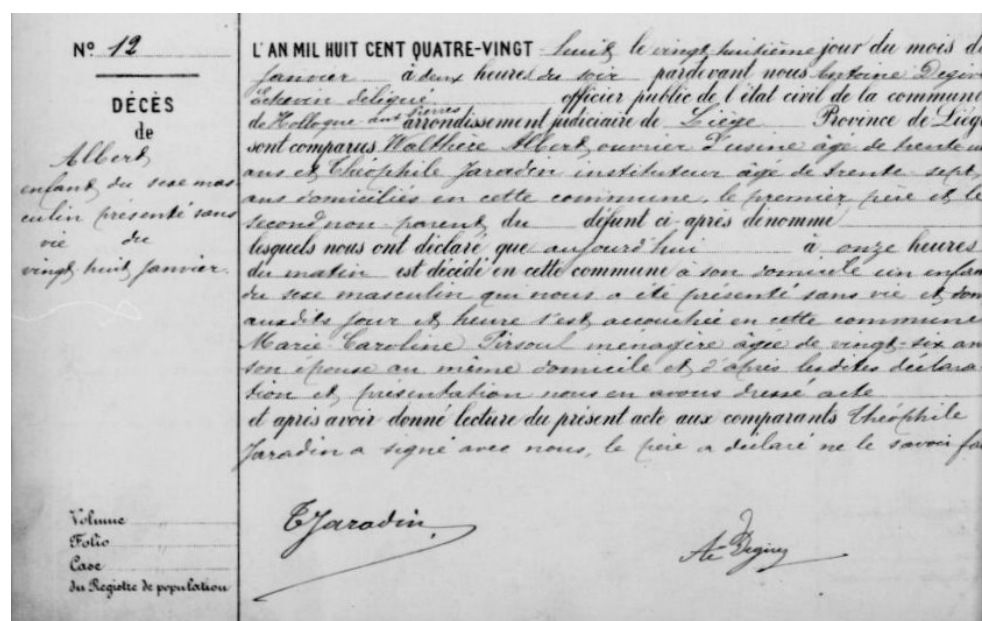 Nº 12
DÉCÈS
de
Albert,
enfant du sexe mas-
culin présenté sans
vie du
vingt huit janvier.
L'AN MIL HUIT CENT QUATRE-VINGT huit le vingt huitième jour du mois d
janvier à deux heures du soir pardevant nous Antoine Degive
Echevin délégué officier public de l'état civil de la commune
de Hollogne aux Pierres arrondissement judiciaire de Liège Province de Liég
sont comparus Walthère Albert, ouvrier d'usine âgé de trente
ans et Théophile Jaradin instituteur âgé de trente-sept
ans domiciliés en cette commune, le premier père et le
second non-parent du défunt ci-après dénommé
lesquels nous ont déclaré que aujourd'hui à onze heures
du matin est décédé en cette commune à son domicile un enfan
du sexe masculin qui nous a été présenté sans vie et don
auxdits jour et heure s'est accouchée en cette commune
Marie Caroline Pirsoul ménagère âgée de vingt-six an
son épouse au même domicile et d'après lesdites déclara
tion et présentation nous en avons dressé acte
et après avoir donné lecture du présent acte aux comparants Théophile
Jaradin a signé avec nous, le père a déclaré ne le savoir fa
T Jaradin
Ae Degive
Volume
Folio
Case
du Registre de population